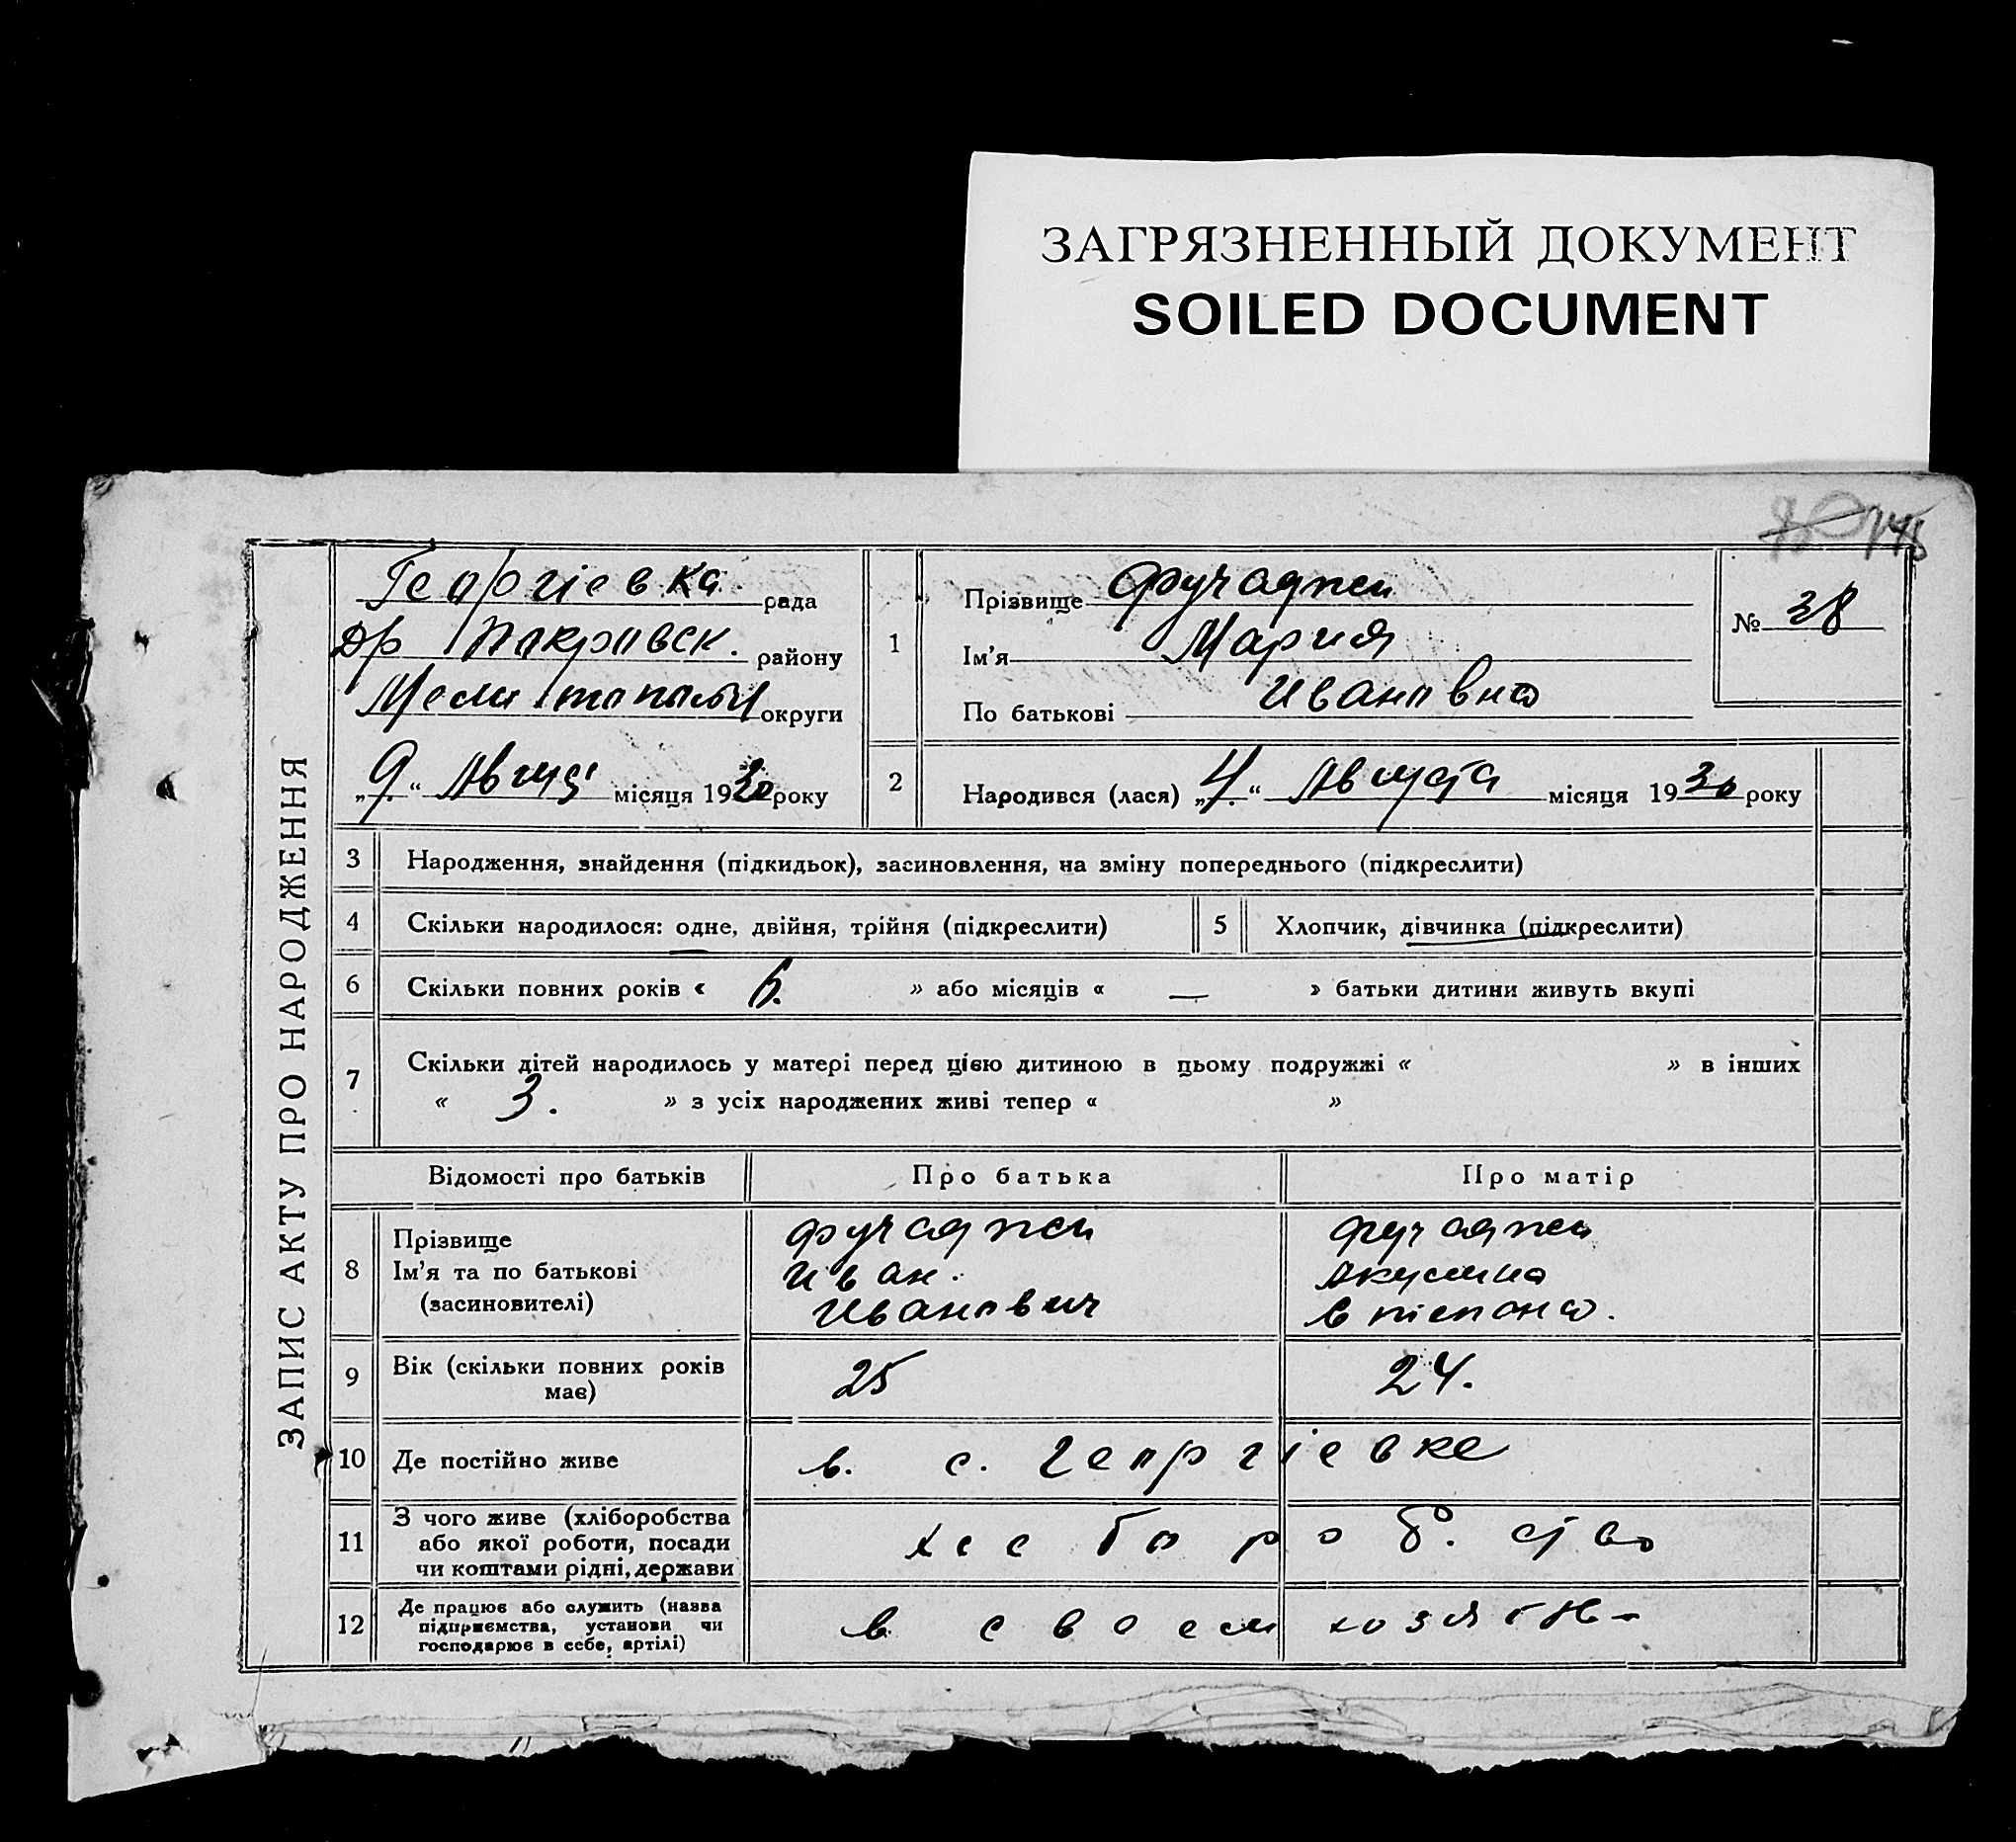 ЗАГРЯЗНЕННЫЙ ДОКУМЕНТ
SOILED DOCUMENT
145
ЗАПИС АКТУ ПРО НАРОДЖЕННЯ
Георгіевка рада
Др Покровск. району
округи
„9.“ Август місяця 1930 року
1 Прізвище Фучаджи
Ім'я Мария
По батькові Ивановна
№ 38
2 Народився (лася) „4.“ Августа місяця 1930 року
3 Народження, знайдення (підкидьок), засиновлення, на зміну попереднього (підкреслити)
4 Скільки народилося: одне, двійня, трійня (підкреслити) 5 Хлопчик, дівчинка (підкреслити)
6 Скільки повних років « 6. » або місяців « — » батьки дитини живуть вкупі
7 Скільки дітей народилось у матері перед цією дитиною в цьому подружжі « » в інших
« 3. » з усіх народжених живі тепер « »
Відомості про батьків Про батька Про матір
8 Прізвище Фучаджи Фучаджи
Ім'я та по батькові Иван. Акулина
(засиновителі) Иванович
9 Вік (скільки повних років 25 24.
має)
10 Де постійно живе в. с. Георгіевке
11 З чого живе (хліборобства
або якої роботи, посади
чи коштами рідні, держави
12 Де працює або служить (назва
підприємства, установи чи в своем
господарює в себе, артілі)